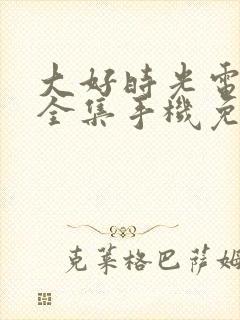 大好時光電
全集手機免
克萊格巴薩姆